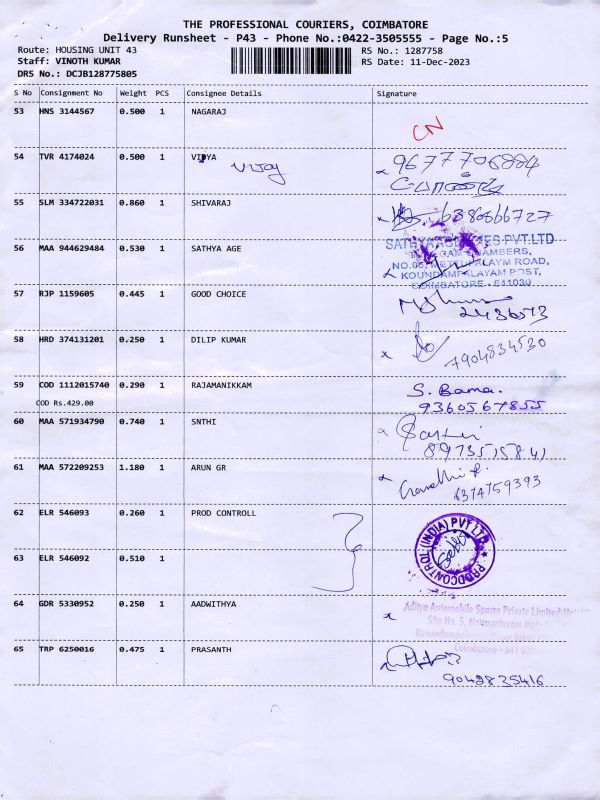 THE PROFESSIONAL COURIERS, COIMBATORE
Delivery Runsheet - P43 - Phone No.:0422-3505555 - Page No.:5
Route: HOUSING UNIT 43 RS No.: 1287758
Staff: VINOTH KUMAR RS Date: 11-Dec-2023
DRS No.: DCJB128775805
S No Consignment No Weight PCS Consignee Details Signature
53 HNS 3144567 0.500 1 NAGARAJ
CN
54 TVR 4174024 0.500 1 VIDYA
Vijay
9677706884
55 SLM 334722031 0.860 1 SHIVARAJ
6380666727
56 MAA 944629484 0.530 1 SATHYA AGE
SATHYA AGENCIES PVT.LTD
CHAMBERS,
METTUPALAYAM ROAD,
KOUNDAMPALAYAM POST,
COIMBATORE - 641030
57 RJP 1159605 0.445 1 GOOD CHOICE
2436573
58 HRD 374131201 0.250 1 DILIP KUMAR
7904834530
59 COD 1112015740 0.290 1 RAJAMANIKKAM
COD Rs.429.00
S. Bama.
9360567855
60 MAA 571934790 0.740 1 SNTHI
8973515841
61 MAA 572209253 1.180 1 ARUN GR
6374759393
62 ELR 546093 0.260 1 PROD CONTROLL
PRODCONTROL (INDIA) PVT LTD
63 ELR 546092 0.510 1
64 GDR 5330952 0.250 1 AADWITHYA
Aditya Automobile Spares Private Limited
Site No. 5, Mettupalayam
Coimbatore - 641 030
65 TRP 6250016 0.475 1 PRASANTH
9042835416